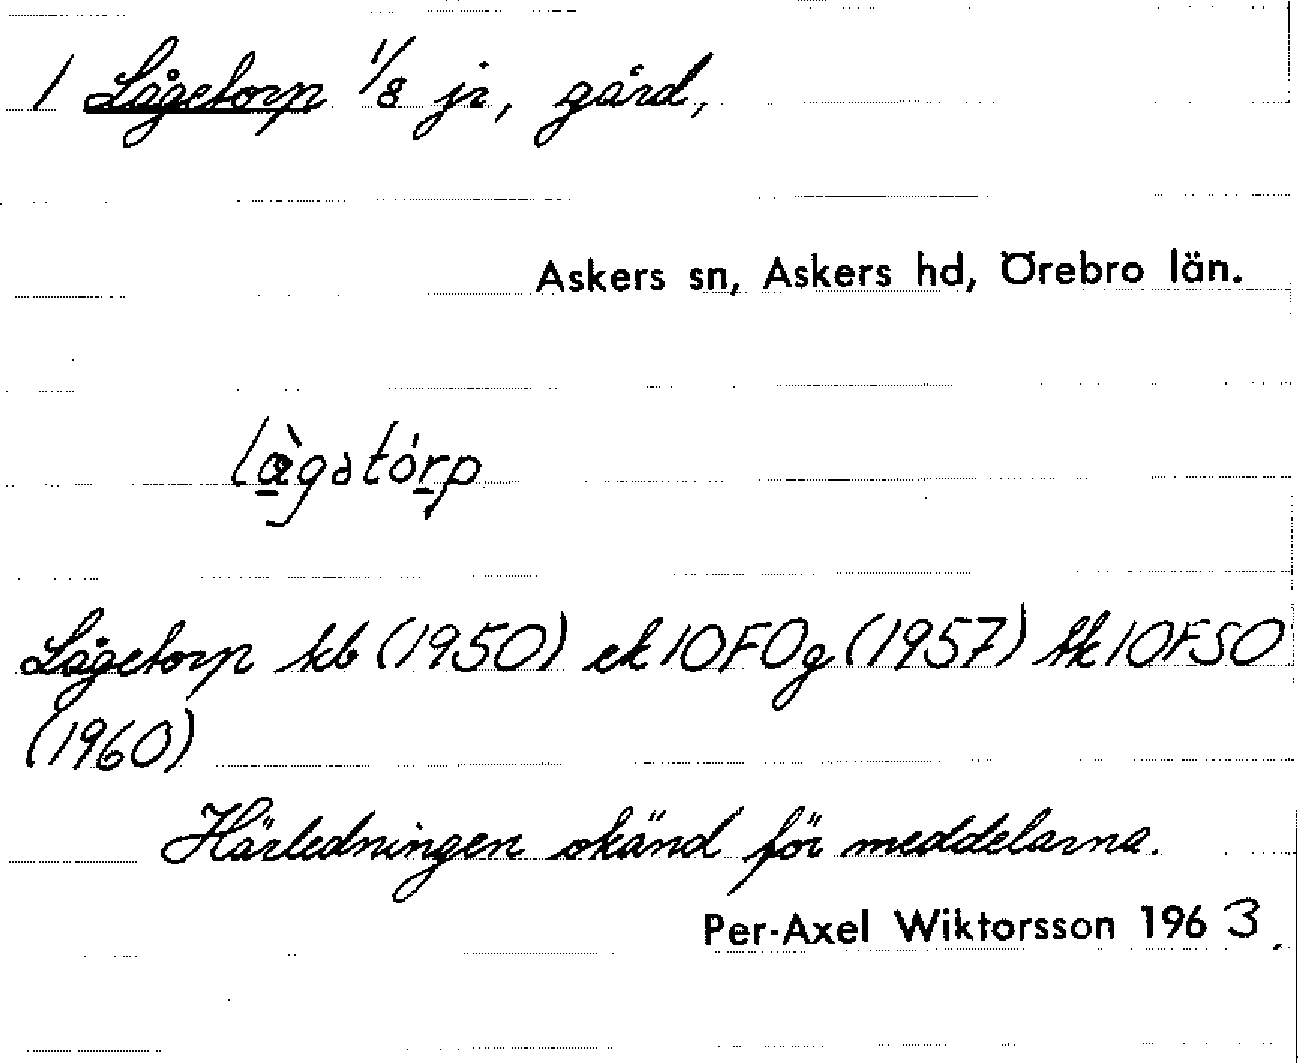 1 Lågetorp 1/8 jr, gård,
Askers sn, Askers hd, Örebro län.
Lågetorp kb (1950) ek 10F0g (1957) tk 10FSO
(1960)
Härledningen okänd för meddelarna.
Per-Axel Wiktorsson 1963.